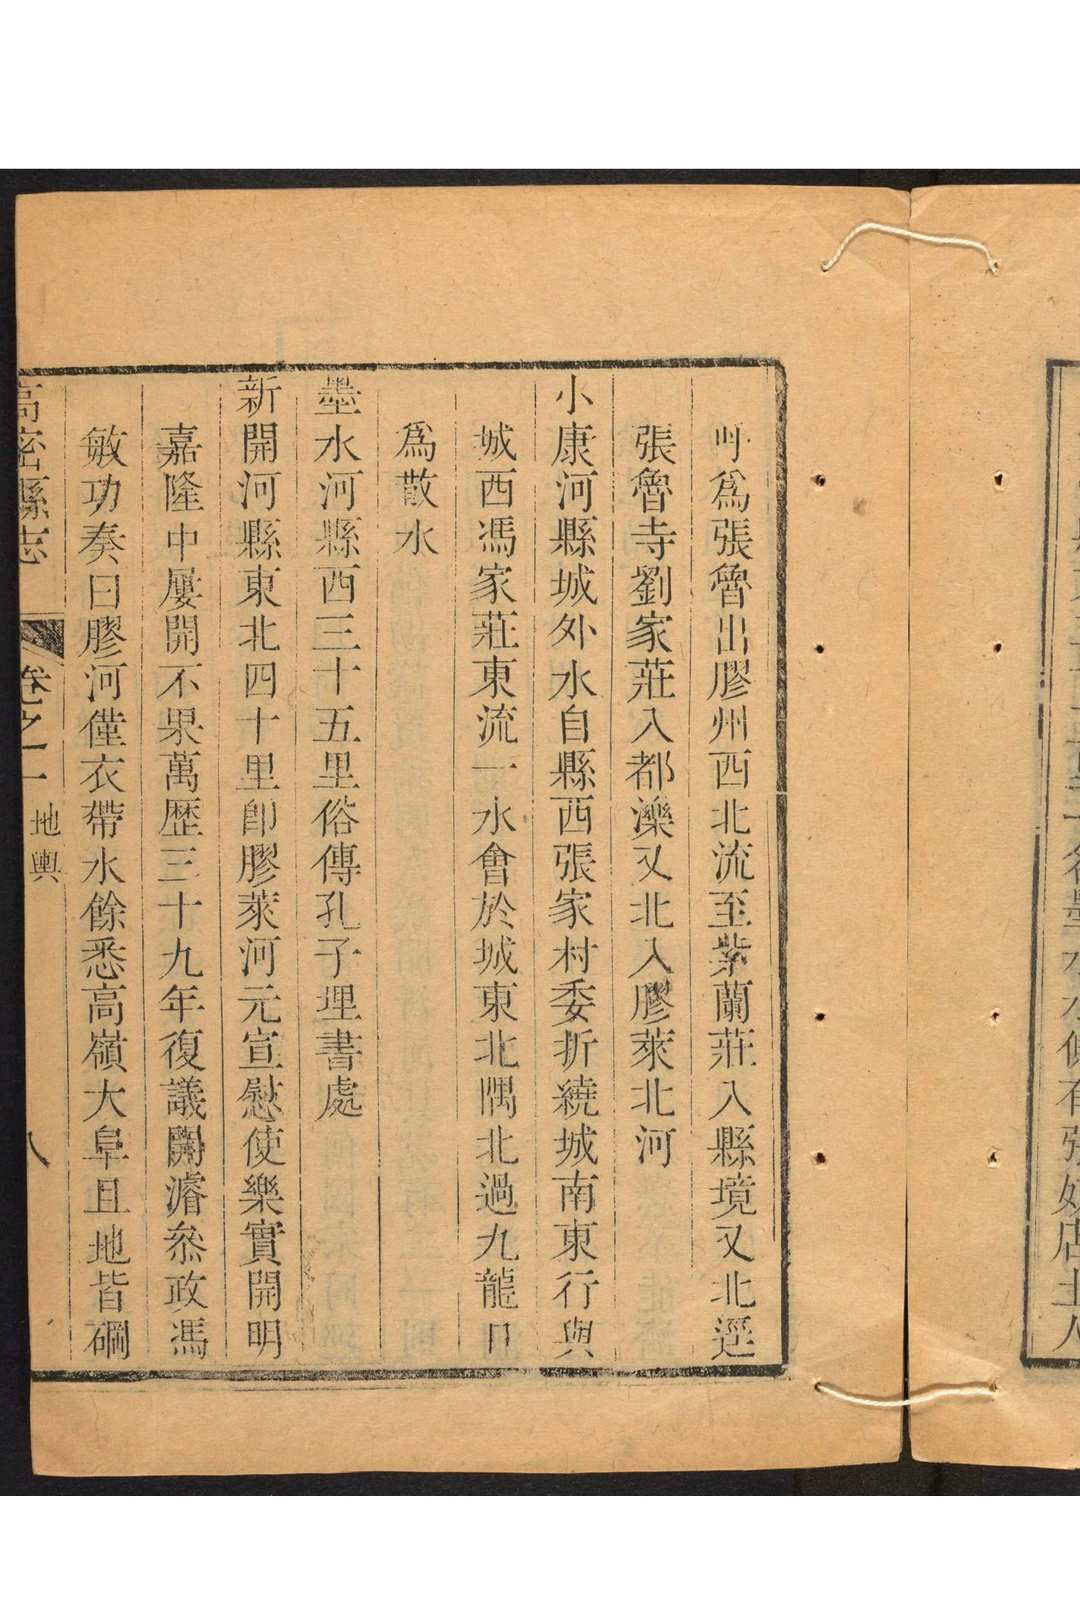 為張魯出膠州西北流至紫蘭莊入縣境又北逕
張魯寺劉家莊入都濼又北入膠萊北河
小康河縣城外水自縣西張家村委折繞城南東行與
城西馮家莊東流一水會於城東北隅北過九龍口
為散水
墨水河縣西三十五里俗傳孔子埋書處
新開河縣東北四十里卽膠萊河元宣慰使樂實開明
嘉隆中屢開不果萬歷三十九年復議開濬叅政馮
敏功奏曰膠河僅衣帶水餘悉高嶺大阜且地皆碙
高密縣志 卷之一 地輿 八